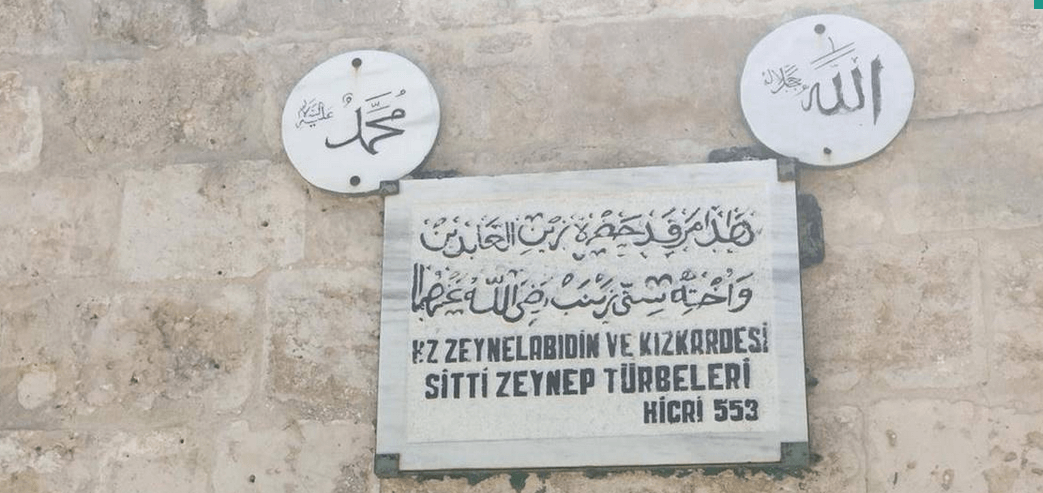 الله جل جلاله
محمد عليه السلام
هَذَا مَرْقَدِ حَضْرَةِ زَيْنِ الْعَابِدِينْ
وَاُخْتِهِ سِتِّى زَيْنَبْ رَضِىَ اللّٰهُ عَنْهُمَا
HZ ZEYNELABİDİN VE KIZKARDEŞİ
SİTTİ ZEYNEP TÜRBELERİ
HİCRİ 553